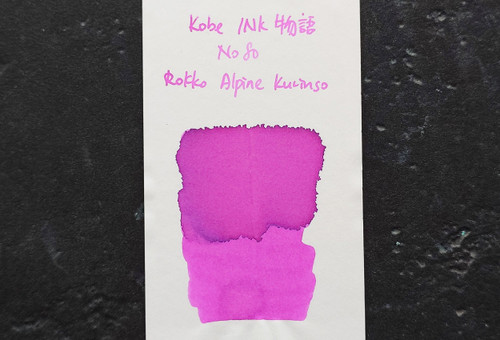 Kobe INK 物語
No 80
Rokko Alpine Kurinso